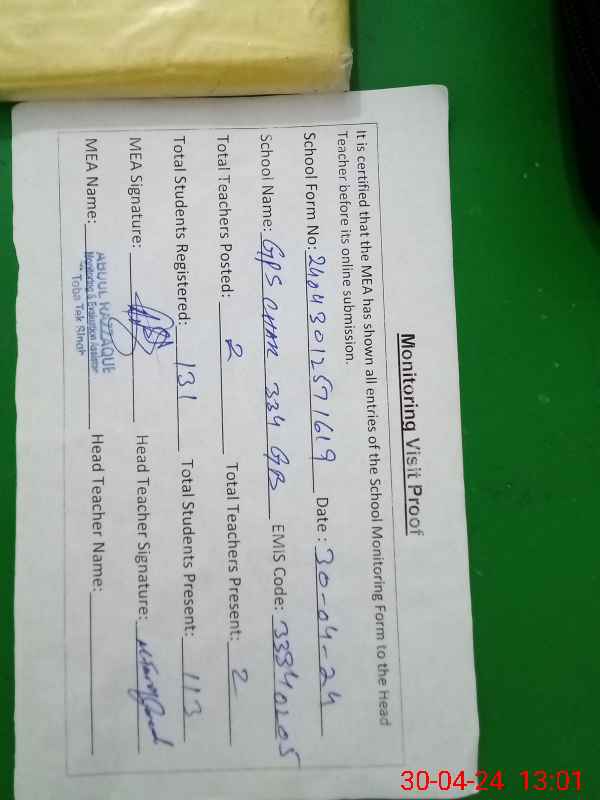 Monitoring Visit Proof
It is certified that the MEA has shown all entries of the School Monitoring Form to the Head
Teacher before its online submission.
School Form No: 24043012571619 Date : 30-04-24
School Name: GPS CHAK 334 GB EMIS Code: 33340205
Total Teachers Posted: 2 Total Teachers Present: 2
Total Students Registered: 131 Total Students Present: 113
MEA Signature: Head Teacher Signature:
MEA Name: ABDUL RAZZAQUE Head Teacher Name:
Monitoring & Evaluation Assistant
Toba Tek Singh
30-04-24 13:01